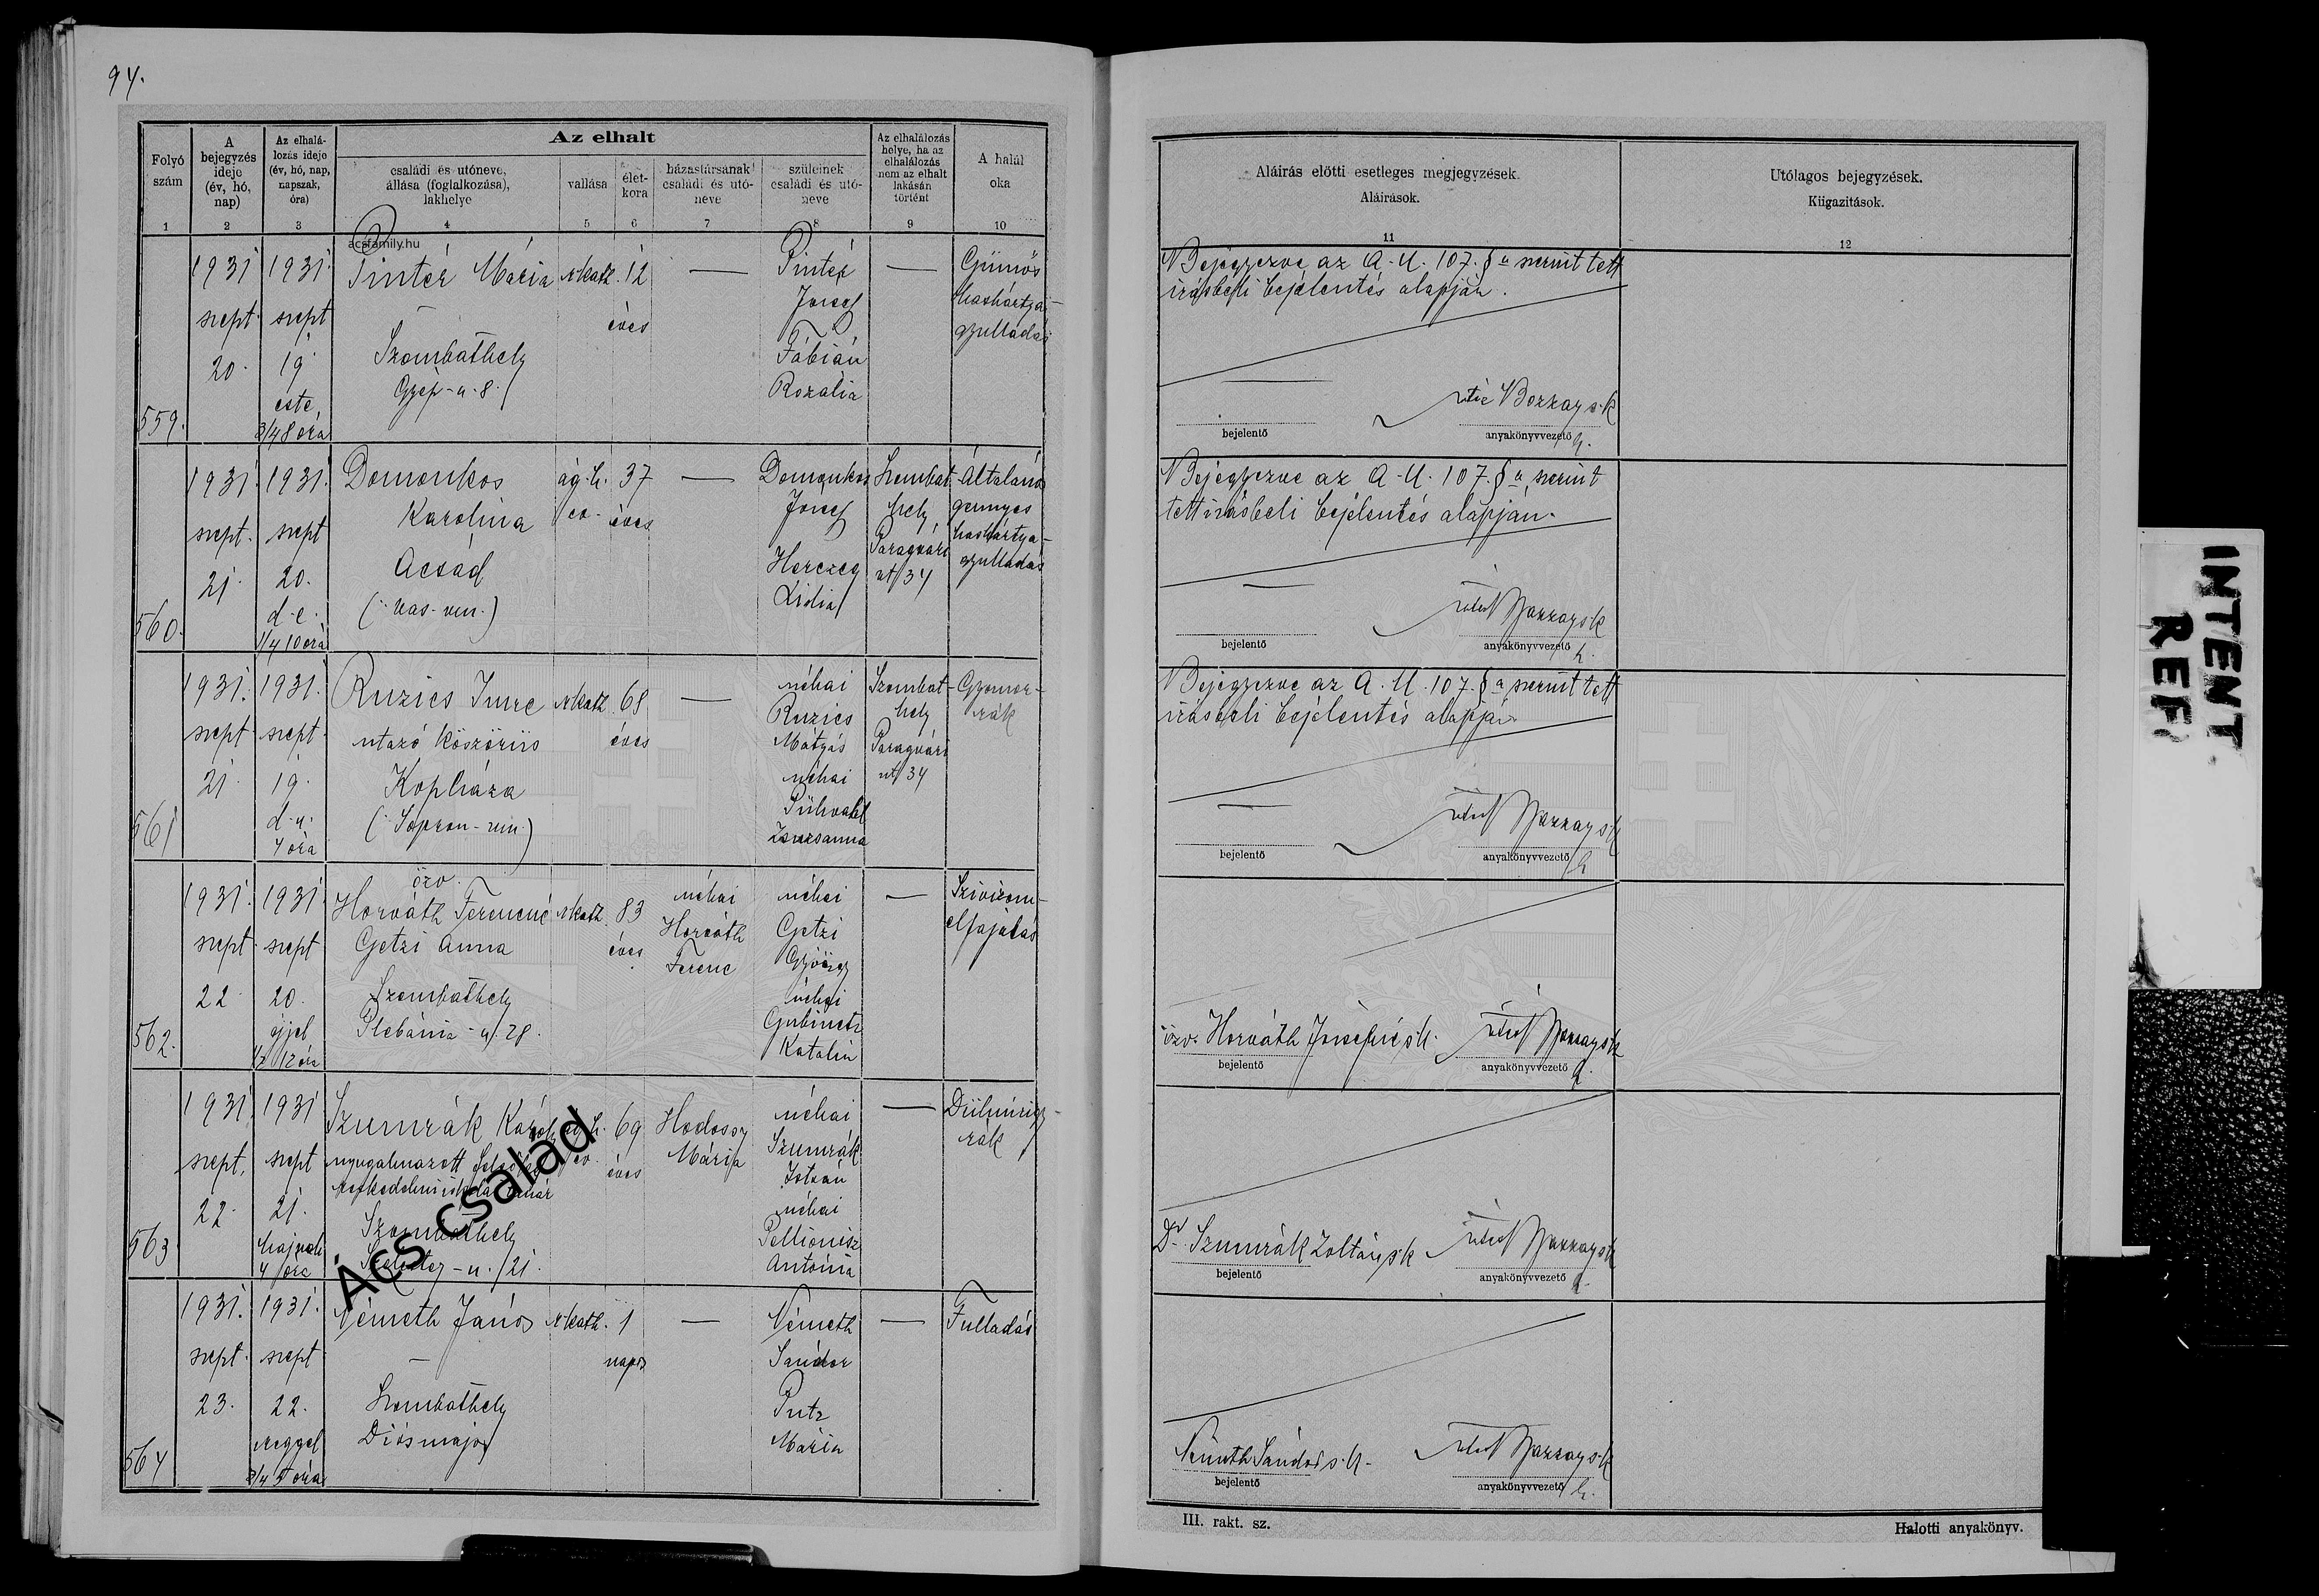 94.
Folyó szám
A bejegyzés ideje (év, hó, nap)
Az elhalálozás ideje (év, hó, nap, napszak, óra)
Az elhalt
családi és utóneve, állása (foglalkozása), lakhelye
vallása
életkora
házastársának családi és utóneve
szüleinek családi és utóneve
Az elhalálozás helye, ha az elhalálozás nem az elhalt lakásán történt
A halál oka
Aláírás előtti esetleges megjegyzések.
Aláírások.
Utólagos bejegyzések.
Kiigazítások.
1 2 3 4 5 6 7 8 9 10 11 12
acsfamily.hu
559.
1931 szept. 20.
1931. szept 19. este, 3/4 8 óra
Pintér Mária
—
Szombathely
Gyép-u. 8.
r. kath.
12 éves
—
Pintér József
Fábián Rozália
—
Gümős hashártya-gyulladás
Bejegyezve az A. U. 107. §-a szerint tett
írásbeli bejelentés alapján.
bejelentő
Bozzay s.k.
anyakönyvvezető h.
560.
1931. szept. 21.
1931. szept 20. d.e. 1/4 10 óra
Domonkos
Karolina
Acsád
(Vas-vm.)
ág. h. ev.
37 éves
—
Domonkos József
Herczeg Lidia
Szombathely Paragvári ut 34
Általános gennyes hashártya-gyulladás
Bejegyezve az A. U. 107. §-a szerint
tett írásbeli bejelentés alapján.
bejelentő
Bozzay s.k.
anyakönyvvezető h.
561
1931. szept 21.
1931. szept. 19. d.u. 4 óra
Ruzics Imre
utazó köszörűs
Kopháza
(Sopron-vm.)
r. kath.
68 éves
—
néhai Ruzics Mátyás
néhai Zsuzsanna
Szombathely Paragvári ut 34
Gyomor-rák
Bejegyezve az A. U. 107. §-a szerint tett
írásbeli bejelentés alapján
bejelentő
Bozzay s.k.
anyakönyvvezető h
562.
1931. szept. 22.
1931. szept 20. éjjel 1/2 12 óra
özv.
Horváth Ferencné
Getzi Anna
Szombathely
Plebánia-u. 28.
r. kath.
83 éves
néhai Horváth Ferenc
néhai Getzi György
néhai Gubinetz Katalin
—
Szivizom-elfajulás
özv. Horváth Józsefné s.k.
bejelentő
Bozzay s.k.
anyakönyvvezető h.
563
1931. szept. 22.
1931 szept 21. hajnali 4 óra
Szumrák Károly
nyugalmazott felső
kereskedelmi iskolai tanár
Szombathely
u. 21.
ág. h. ev.
69 éves
Hodossy Mária
néhai Szumrák István
néhai Pellionisz Antónia
—
Dülmirigy-rák
Dr. Szumrák Zoltán s.k.
bejelentő
Bozzay s.k.
anyakönyvvezető h.
564
1931. szept. 23.
1931. szept 22. reggel 3/4 5 óra
Németh János
—
Szombathely
Diósmajor
r. kath.
1 napos
—
Németh Sándor
Putz Mária
—
Fulladás
Németh Sándor s.k.
bejelentő
Bozzay s.k.
anyakönyvvezető h.
Ács család
III. rakt. sz.
Halotti anyakönyv.
INTENT
REF